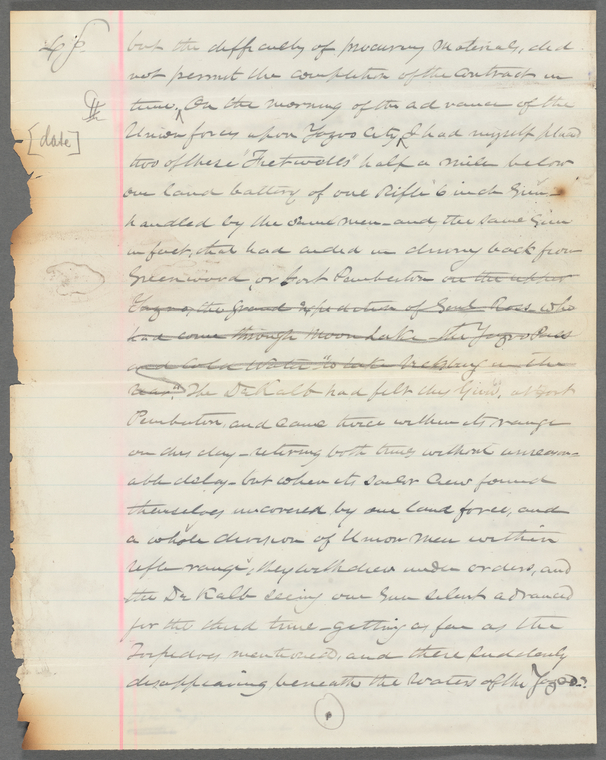 but the difficulty of procuring materials, did
not permit the completion of the contract in
time. On the morning of the advance of the
[date]
Union forces upon Yazoo City, I had myself placed
two of these "Fretwells" half a mile below
our land battery of one Rifle 6 inch Gun -
handled by the same men - and, the same Gun
in fact, that had aided in driving back from
Greenwood, or Fort Pemberton on the upper
Yazoo, the Grand Expedition of Genl Ross who
had come through Moon Lake - the Yazoo Pass
and Cold Water "to take Vicksburg in the
rear." The De Kalb had felt this Gun, at Fort
Pemberton, and came twice within its range
on this day - retiring both times without unreason-
able delay - but when its sailor crew found
themselves uncovered by our land force, and
a whole division of Union men within
rifle range, they withdrew under orders, and
the De Kalb seeing our Gun silent advanced
for the third time - getting as far as the
Torpedoes mentioned, and there suddenly
disappearing beneath the waters of the Yazoo.